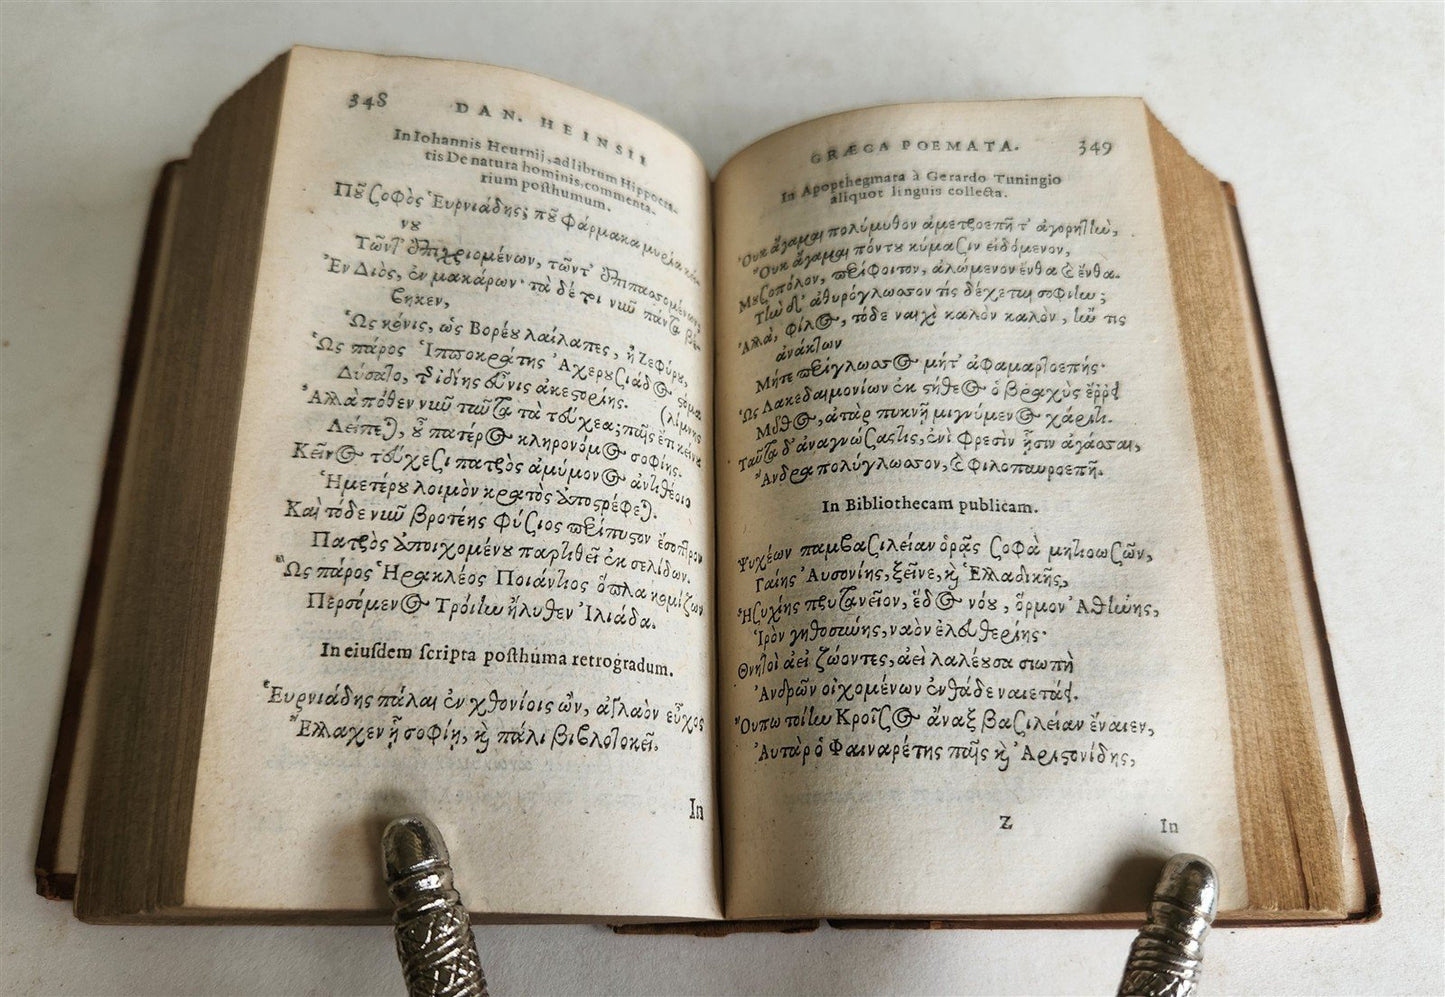 348
DAN. HEINSII
In Iohannis Heurnij, ad librum Hippocra-
tis De natura hominis, commenta-
rium posthumum.
Ποῦ σοφὸς Εὑρνιάδης; ποῦ φάρμακα μυρία
νου
Τῶντ' ἐπιχριομένων, τῶντ' ἐπιπασσομένων;
Ἐν Διὸς, ἐν μακάρων· τὰ δέ τοι νιῶ πάντα
βηκεν,
Ὡς κόνις, ὡς Βορέου λαίλαπες, ἢ Ζεφύρου,
Ὡς πάρος Ἱπποκράτης Ἀχερουσιάδος στόμα
Δύσατο, τ ἰδίης οὖνις ἀκεστορίης. (λίμνης
Ἀλλὰ πόθεν νιῶ ταῦτα τὰ τεύχεα; παῖς ἔτι κείνου
Λείπεται, οὗ πατέρος κληρονόμος σοφίης.
Κεῖνος τεύχεσι πατρὸς ἀμύμονος ἀντιθέοιο
Ἡμετέρου λοιμὸν κρατὸς ὑποστρέφεται.
Καὶ τόδε νιῶ βροτέης φύσιος περίπυστον ἔσοπτρον
Πατρὸς ὑποιχομένου παρτιθεῖ ἐκ σελίδων.
Ὡς πάρος Ἡρακλέος Ποιάντιος ὅπλα κομίζων
Περσόμενος Τροίην ἤλυθεν Ἰλιάδα.
In eiusdem scripta posthuma retrogradum.
Εὑρνιάδης πάλαι ἐν χθονίοις ὢν, ἀγλαὸν εὖχος
Ἔλλαχεν ᾗ σοφίῃ, καὶ πάλι βιβλοτοκεῖ.
In
GRÆCA POEMATA.
349
In Apopthegmata à Gerardo Tuningio
aliquot linguis collecta.
Οὐκ ἄγαμαι πολύμυθον ἀμετροεπῆ τ' ἀγορητὴν,
Οὐκ ἄγαμαι πόντου κύμασιν εἰδόμενον,
Μουσοπόλον, περίφοιτον, ἀλώμενον ἔνθα καὶ ἔνθα.
Τὴν δ' ἀθυρόγλωσσον τίς δέχεται σοφίην;
Ἀλλὰ, φίλος, τόδε ναιχὶ καλὸν καλὸν, ἤν τις
ἀνάκτων
Μήτε περίγλωσσος μήτ' ἀφαμαρτοεπής·
Ὡς Λακεδαιμονίων ἐκ στήθεος ὁ βραχὺς ἔρρει
Μῦθος, ἀτὰρ πυκνῇ μιγνύμενος χάριτι.
Ταῦτα δ' ἀναγνώσαστις, ἐνὶ φρεσὶν ᾗσιν ἀγάσσαι,
Ἄνδρα πολύγλωσσον, καὶ φιλοπαυροεπῆ.
In Bibliothecam publicam.
Ψυχέων παμβασιλείαν ὁρᾷς σοφὰ μητιοωσῶν,
Γαίης Αὐσονίης, ξεῖνε, καὶ Ἑλλαδικῆς,
Ἡσυχίης πρυτανεῖον, ἕδος νόου, ὅρμον Ἀθήνης,
Ἱρὸν γηθοσύνης, ναὸν ἐλευθερίης·
Θνητοὶ ἀεὶ ζώοντες, ἀεὶ λαλέουσα σιωπὴ
Ἀνδρῶν οἰχομένων ἐνθάδε ναιετάει.
Οὔπω τοίην Κροῖσος ἄναξ βασιλείαν ἔναιεν,
Αὐτὰρ ὁ Φαιναρέτης παῖς καὶ Ἀριστονίδης,
Z
In